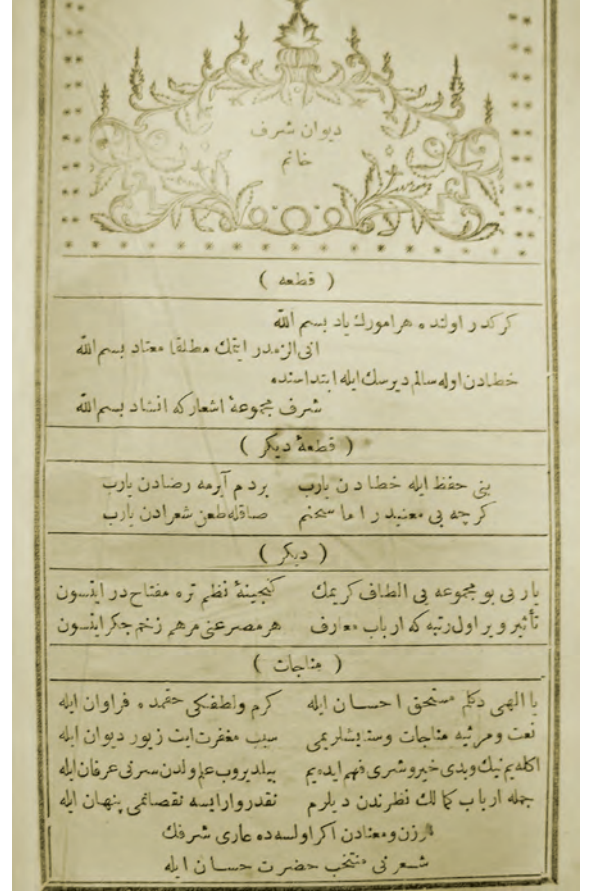 ديوان شرف
خانم
( قطعه )
كركدر اولنده هر امورك ياد بسم الله
انى الزمدر ايتمك مطلقا معتاد بسم الله
خطادن اوله سالم ديرسك ايله ابتداسنده
شرف مجموعهٔ اشعاركه انشاد بسم الله
( قطعهٔ ديكر )
بنى حفظ ايله خطادن يارب بردم آيرمه رضادن يارب
كرچه بى معنيدر اما سخنم صاقله طعن شعرادن يارب
( ديكر )
يا ربى بو مجموعه يى الطاف كريمك كنجينهٔ نظم تره مفتاح در ايتسون
تأثير وير اول رتبه كه ارباب معارف هر مصرعنى مرهم زخم جكر ايتسون
( مناجات )
يا الهى دكلم مستحق احسان ايله كرم ولطفكى حقمده فراوان ايله
نعت ومرثيه مناجات وستايشلريمى سبب مغفرت ايت زيور ديوان ايله
اكله يم نيك وبدى خير وشرى فهم ايده يم بيلديروب علم ولدن سرنى عرفان ايله
جمله ارباب كمالك نظرندن ديلرم نقدر وار ايسه نقصانمى پنهان ايله
وزن ومعنادن اكر اولسه ده عارى شرفك
شعرنى منتخب حضرت حسان ايله